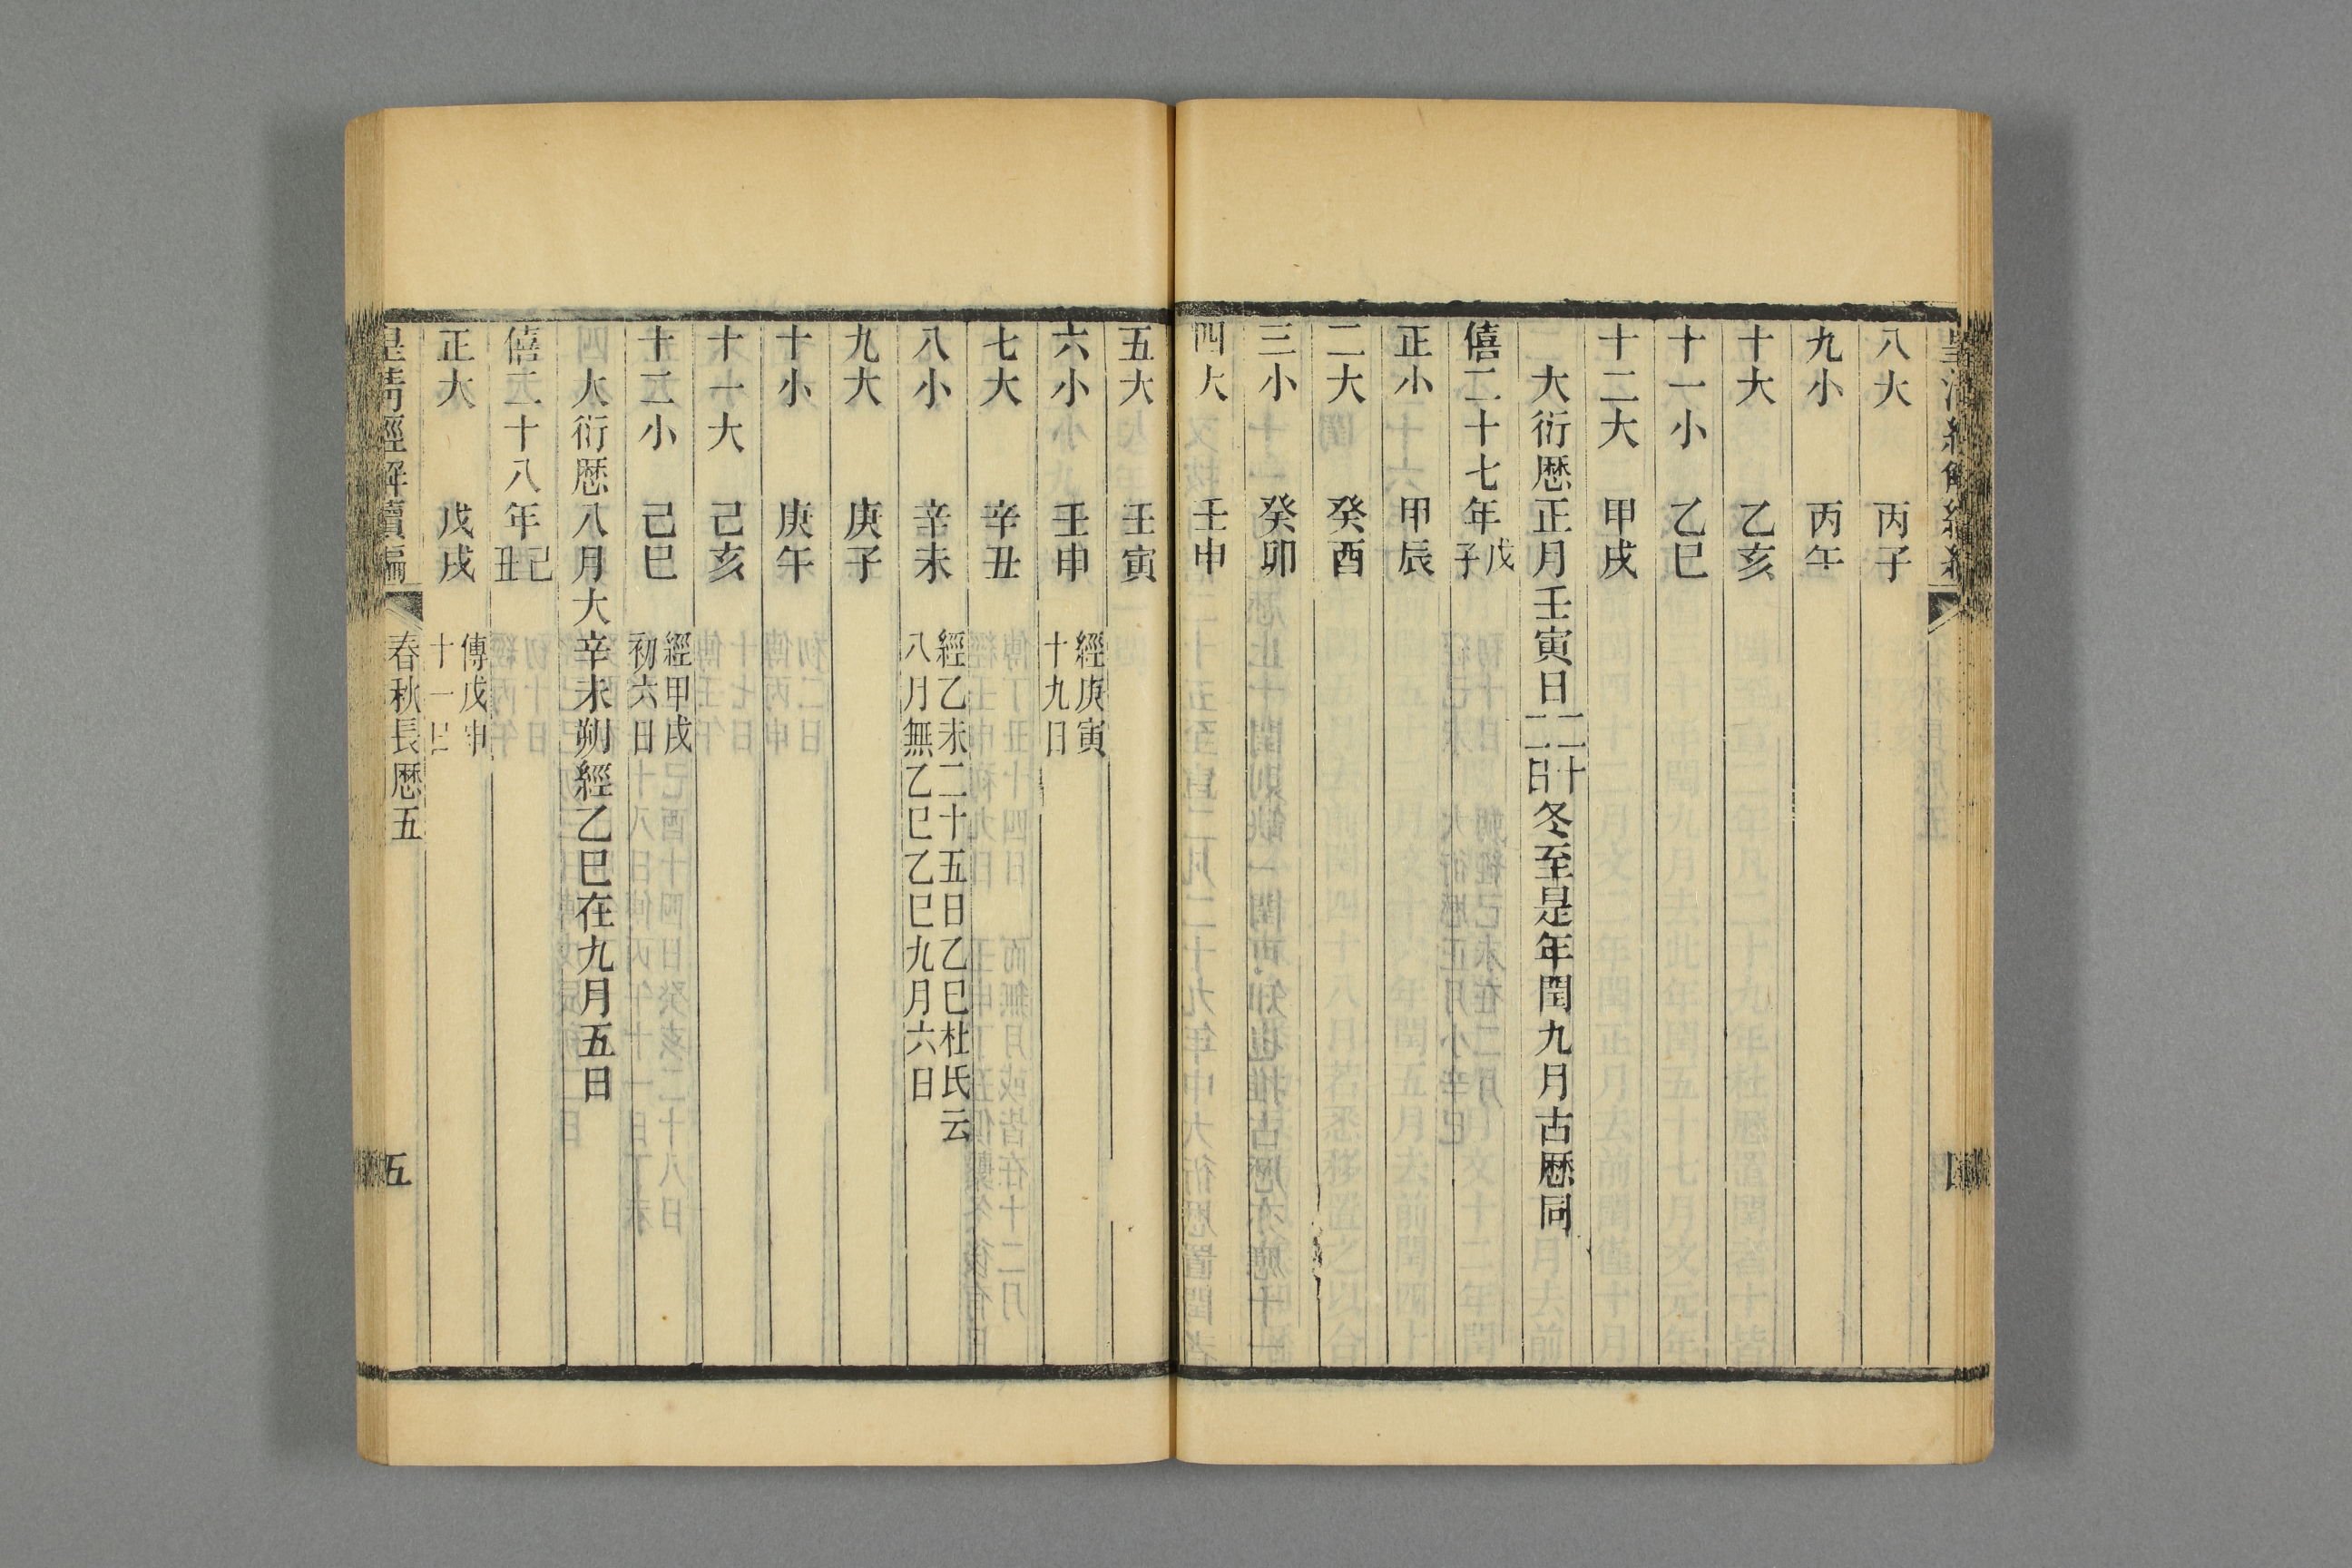 八大　丙子
九小　丙午
十大　乙亥
十一小　乙巳
十二大　甲戌
大衍厯正月壬寅日二十二日冬至是年閏九月古厯同
僖二十七年戊子
正小　甲辰
二大　癸酉
三小　癸卯
四大　壬申
五大　壬寅
六小　壬申　經庚寅
十九日
七大　辛丑
八小　辛未　經乙未二十五日乙巳杜氏云
八月無乙巳乙巳九月六日
九大　庚子
十小　庚午
十一大　己亥
十二小　己巳　經甲戌
初六日
大衍厯八月大辛未朔經乙巳在九月五日
僖二十八年己丑
正大　戊戌　傳戊申
十一日
皇清經解續編　春秋長厯五　五